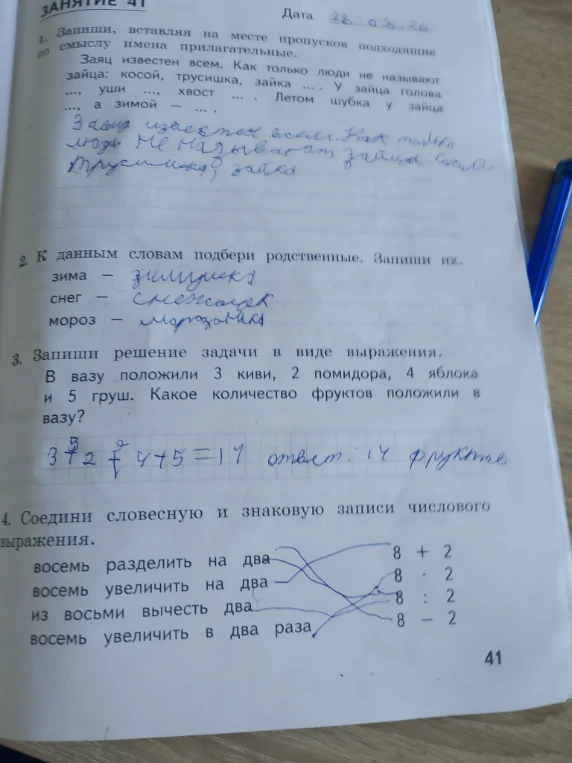 ЗАНЯТИЕ 41
Дата 28.03.26
1. Запиши, вставляя на месте пропусков подходящие
по смыслу имена прилагательные.
Заяц известен всем. Как только люди не называют
зайца: косой, трусишка, зайка ... . У зайца голова
..., уши ..., хвост ... . Летом шубка у зайца
..., а зимой — ... .
Заяц известен всем. Как только
люди не называют зайца
трусишка, зайка
2. К данным словам подбери родственные. Запиши их.
зима —
снег — снежочек
мороз —
3. Запиши решение задачи в виде выражения.
В вазу положили 3 киви, 2 помидора, 4 яблока
и 5 груш. Какое количество фруктов положили в
вазу?
3 + 2 + 4 + 5 = 14 ответ: 14 фруктов
4. Соедини словесную и знаковую записи числового
выражения.
восемь разделить на два 8 + 2
восемь увеличить на два 8 · 2
из восьми вычесть два 8 : 2
восемь увеличить в два раза 8 − 2
41